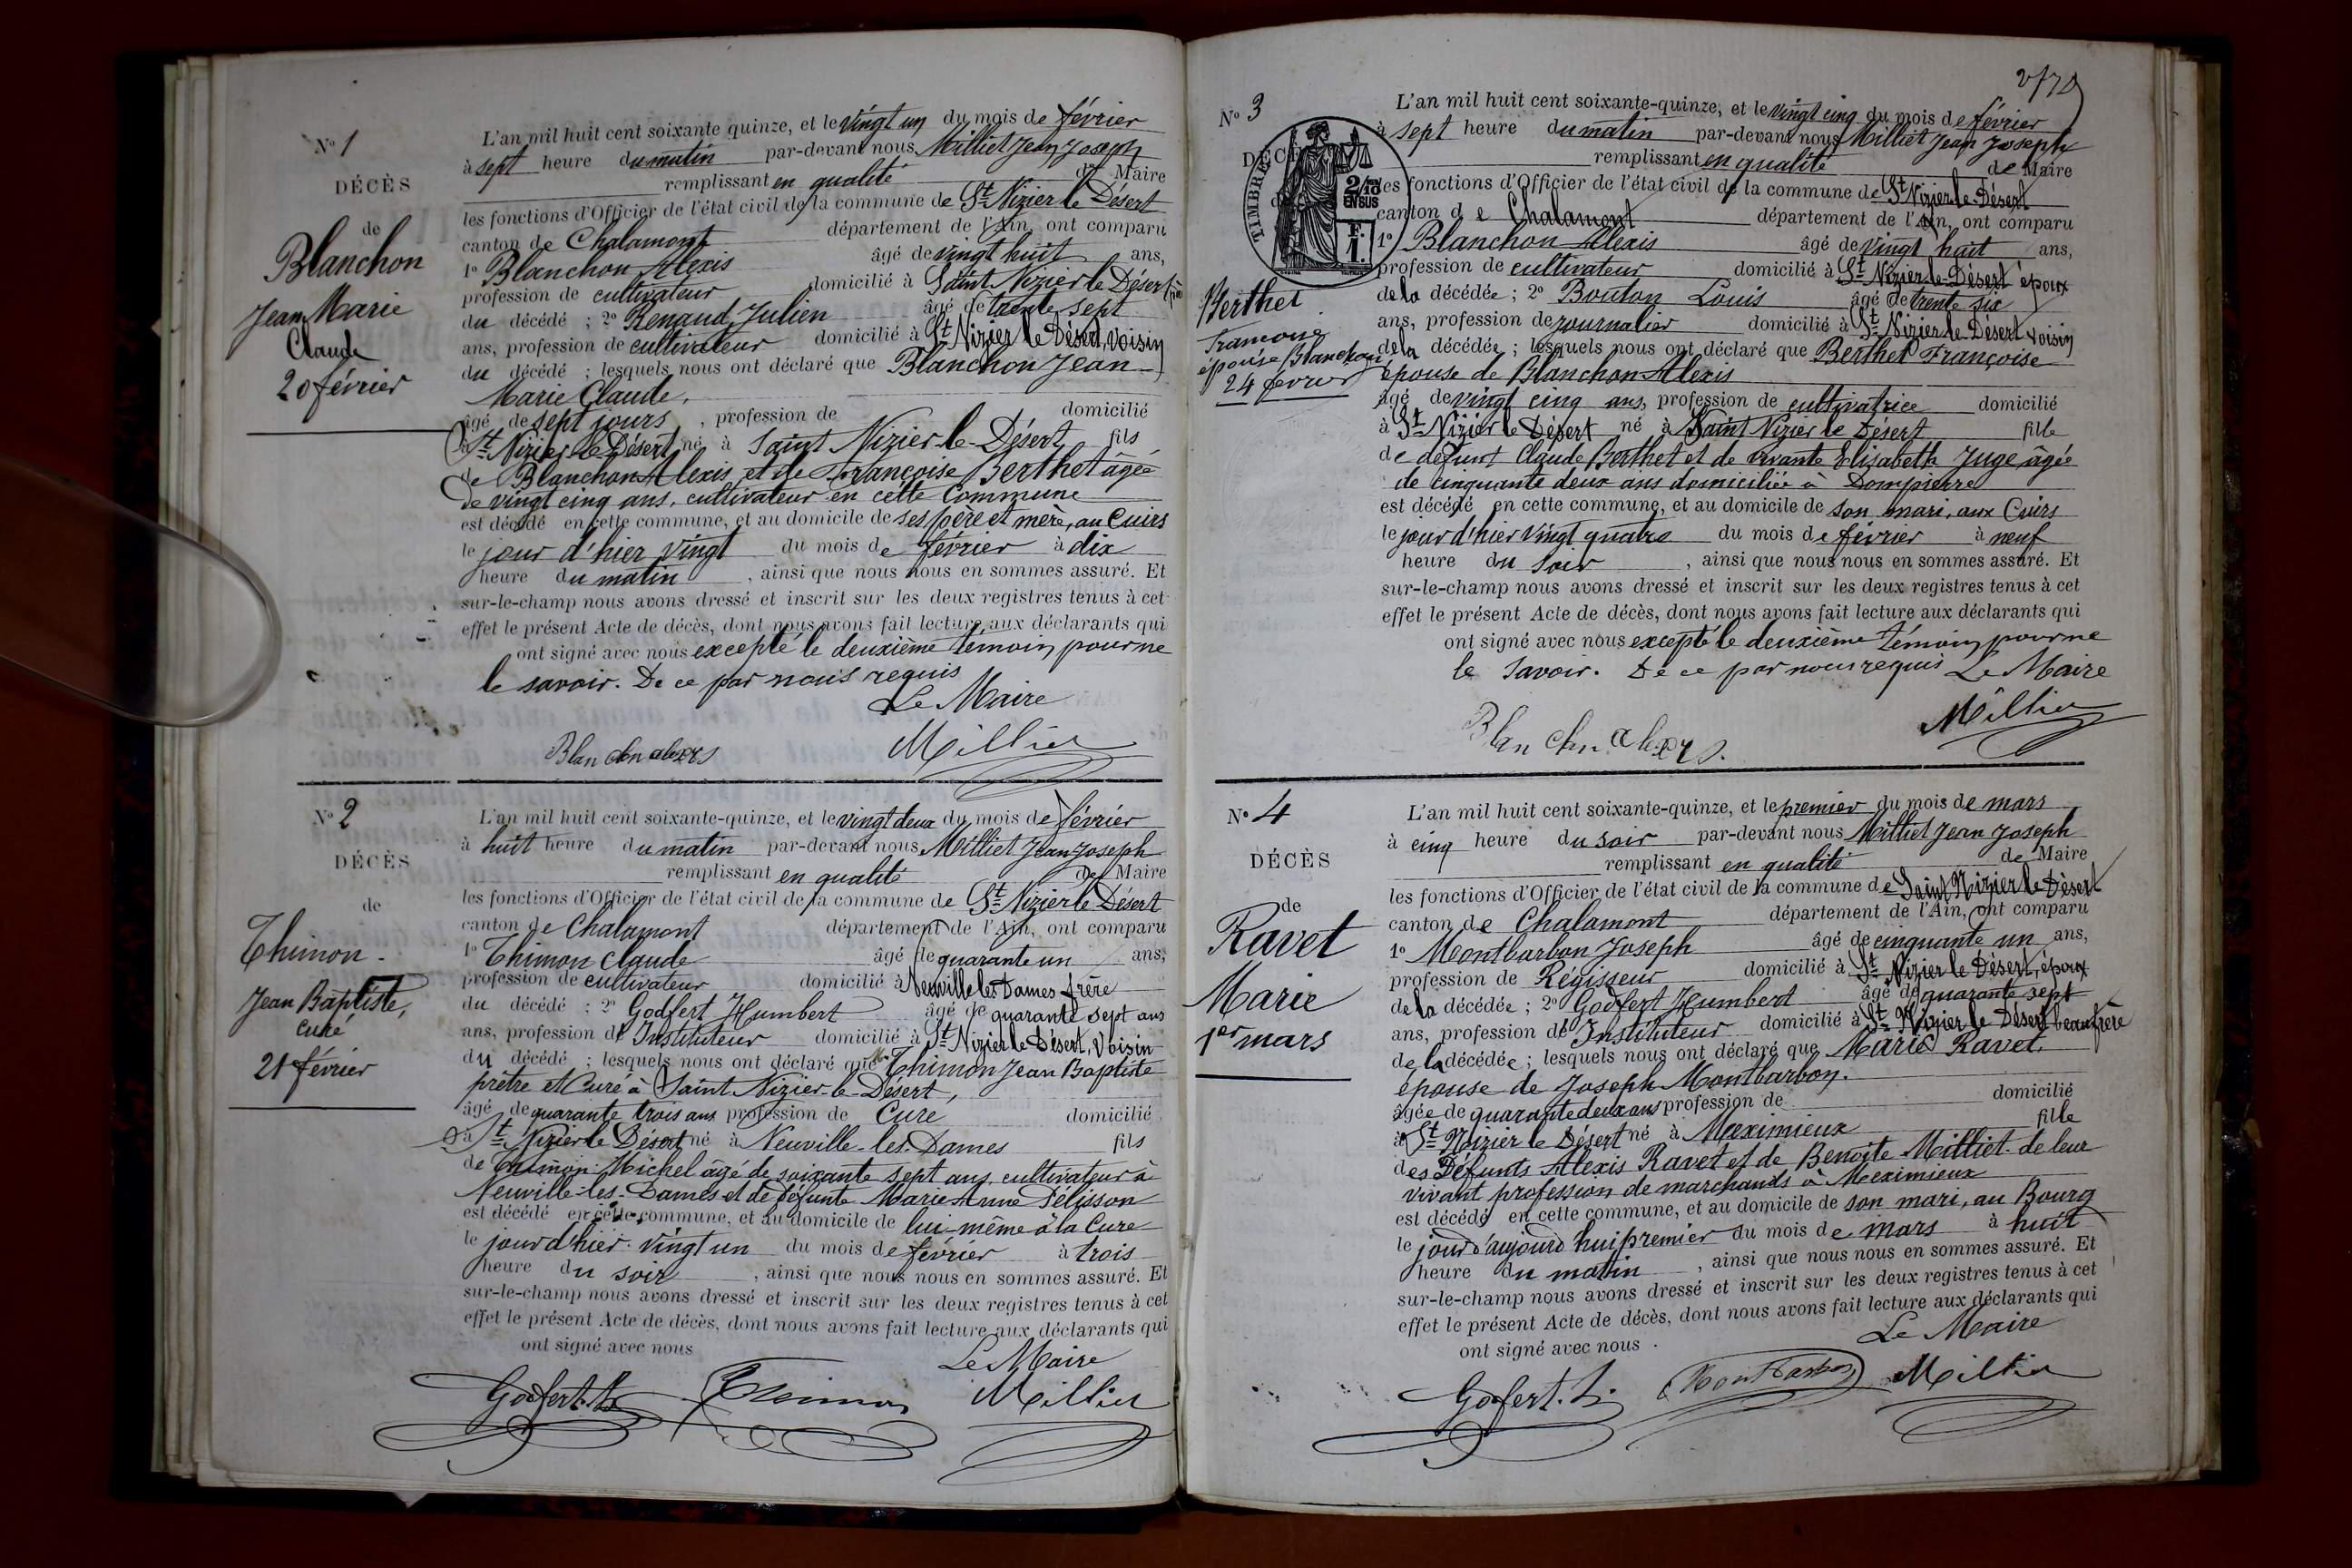 N° 1
DÉCÈS
de
Blanchon
Jean Marie
Claude
20 février
L'an mil huit cent soixante quinze, et le vingt un du mois de février
à sept heure du matin par-devant nous Milliet Jean Joseph
remplissant en qualité de Maire
les fonctions d'Officier de l'état civil de la commune de St Nizier le Désert
canton de Chalamont département de l'Ain, ont comparu
1° Blanchon Alexis âgé de vingt huit ans,
profession de cultivateur domicilié à Saint Nizier le Désert père
du décédé ; 2° Renaud Julien âgé de trente sept
ans, profession de cultivateur domicilié à St Nizier le Désert, voisin
du décédé ; lesquels nous ont déclaré que Blanchon Jean
Marie Claude,
âgé de sept jours , profession de domicilié
à St Nizier le Désert né à Saint Nizier-le-Désert fils
de Blanchon Alexis et de Françoise Berthet âgée
de vingt cinq ans, cultivateur en cette Commune
est décédé en cette commune, et au domicile de ses père et mère, au Cuirs
le jour d'hier vingt du mois de février à dix
heure du matin , ainsi que nous nous en sommes assuré. Et
sur-le-champ nous avons dressé et inscrit sur les deux registres tenus à cet
effet le présent Acte de décès, dont nous avons fait lecture aux déclarants qui
ont signé avec nous excepté le deuxième témoin pour ne
le savoir. De ce par nous requis
Le Maire
Blanchon alexis Milliet
N° 2
DÉCÈS
de
Thimon
Jean Baptiste,
curé
21 février
L'an mil huit cent soixante-quinze, et le vingt deux du mois de février
à huit heure du matin par-devant nous Milliet Jean Joseph
remplissant en qualité de Maire
les fonctions d'Officier de l'état civil de la commune de St Nizier le Désert
canton de Chalamont département de l'Ain, ont comparu
1° Thimon Claude âgé de quarante un ans,
profession de cultivateur domicilié à Neuville les Dames frère
du décédé ; 2° Godfert Humbert âgé de quarante sept ans
ans, profession de Instituteur domicilié à St Nizier le Désert, Voisin
du décédé ; lesquels nous ont déclaré que Thimon Jean Baptiste
prêtre et Curé à Saint Nizier-le-Désert,
âgé de quarante trois ans profession de Cure domicilié
à St Nizier le Désert né à Neuville-les-Dames fils
de Thimon Michel âgé de soixante sept ans, cultivateur à
Neuville-les-Dames et de défunte Marie Anne Pélisson
est décédé en cette commune, et au domicile de lui-même à la Cure
le jour d'hier vingt un du mois de février à trois
heure du soir , ainsi que nous nous en sommes assuré. Et
sur-le-champ nous avons dressé et inscrit sur les deux registres tenus à cet
effet le présent Acte de décès, dont nous avons fait lecture aux déclarants qui
ont signé avec nous
Le Maire
Godfert. h Thimon Milliet
N° 3
DÉCÈ
TIMBRE
2/10
EN SUS
F.
1.
Berthet
épouse Blanchon
24 février
L'an mil huit cent soixante-quinze, et le vingt cinq du mois de février
à sept heure du matin par-devant nous Milliet Jean Joseph
remplissant en qualité de Maire
les fonctions d'Officier de l'état civil de la commune de St Nizier-le-Désert
canton de Chalamont département de l'Ain, ont comparu
1° Blanchon Alexis âgé de vingt huit ans,
profession de cultivateur domicilié à St Nizier-le-Désert époux
de la décédée ; 2° Bouton Louis âgé de trente six
ans, profession de journalier domicilié à St Nizier le Désert voisin
de la décédée ; lesquels nous ont déclaré que Berthet Françoise
épouse de Blanchon Alexis
âgé de vingt cinq ans, profession de cultivatrice domicilié
à St Nizier le Désert né à Saint Nizier le Désert fille
de défunt Claude Berthet et de vivante Elisabeth Juge âgée
de cinquante deux ans domiciliée à Dompierre
est décédé en cette commune, et au domicile de son mari, aux Cuirs
le jour d'hier vingt quatre du mois de février à neuf
heure du soir , ainsi que nous nous en sommes assuré. Et
sur-le-champ nous avons dressé et inscrit sur les deux registres tenus à cet
effet le présent Acte de décès, dont nous avons fait lecture aux déclarants qui
ont signé avec nous excepté le deuxième témoin pour ne
le savoir. De ce par nous requis Le Maire
Blanchon alexis. Milliet
N° 4
DÉCÈS
de
Ravet
Marie
1er mars
L'an mil huit cent soixante-quinze, et le premier du mois de mars
à cinq heure du soir par-devant nous Milliet Jean Joseph
remplissant en qualité de Maire
les fonctions d'Officier de l'état civil de la commune de Saint Nizier le Désert
canton de Chalamont département de l'Ain, ont comparu
1° Montbarbon Joseph âgé de cinquante un ans,
profession de Régisseur domicilié à St Nizier le Désert, époux
de la décédée ; 2° Godfert Humbert âgé de quarante sept
ans, profession de Instituteur domicilié à St Nizier le Désert beau frère
de la décédée ; lesquels nous ont déclaré que Marie Ravet,
épouse de Joseph Montbarbon.
âgée de quarante deux ans profession de domicilié
à St Nizier le Désert né à Meximieux fille
des Défunts Alexis Ravet et de Benoite Milliet de leur
vivant profession de marchands à Meximieux
est décédé en cette commune, et au domicile de son mari, au Bourg
le jour d'aujourd'hui premier du mois de mars à huit
heure du matin , ainsi que nous nous en sommes assuré. Et
sur-le-champ nous avons dressé et inscrit sur les deux registres tenus à cet
effet le présent Acte de décès, dont nous avons fait lecture aux déclarants qui
ont signé avec nous .
Le Maire
Godfert. h. Montbarbon Milliet